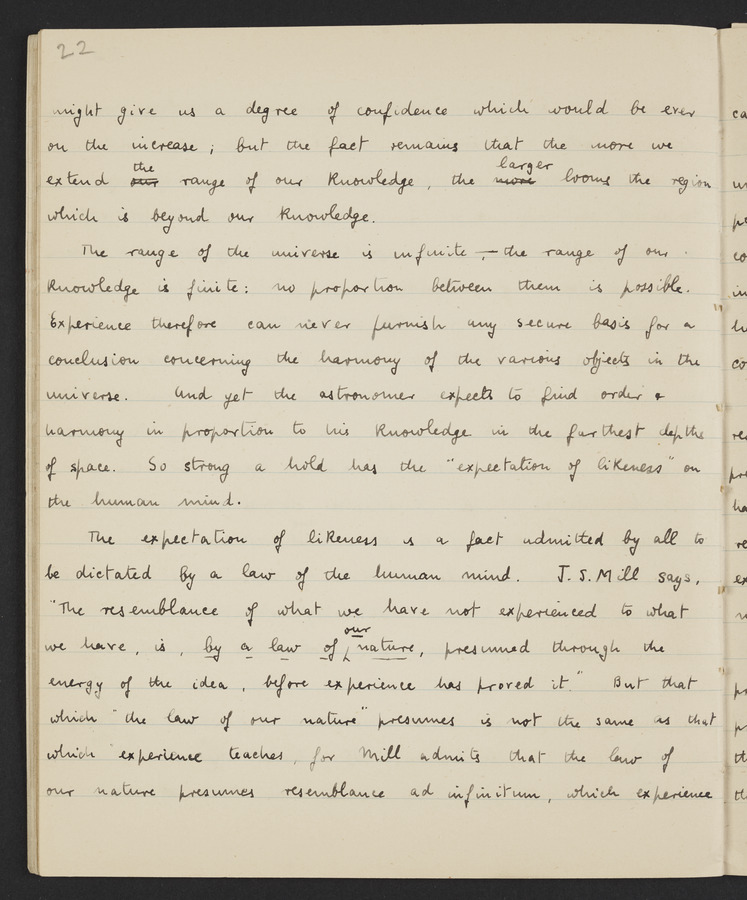 22
might give us a degree of confidence which would be ever
on the increase; but the fact remains that the more we
extend our the range of our knowledge, the more larger looms the region
which is beyond our knowledge.
The range of the universe is infinite, — the range of our
knowledge is finite: no proportion between them is possible.
Experience therefore can never furnish any secure basis for a
conclusion concerning the harmony of the various objects in the
universe. And yet the astronomer expects to find order &
harmony in proportion to his knowledge in the furthest depths
of space. So strong a hold has the "expectation of likeness" on
the human mind.
The expectation of likeness is a fact admitted by all to
be dictated by a law of the human mind. J.S. Mill says,
"The resemblance of what we have not experienced to what
we have, is, by a law of our nature, presumed through the
energy of the idea, before experience has proved it." But that
which "the law of our nature" presumes is not the same as that
which experience teaches, for Mill admits that the law of
our nature presumes resemblance ad infinitum, which experience